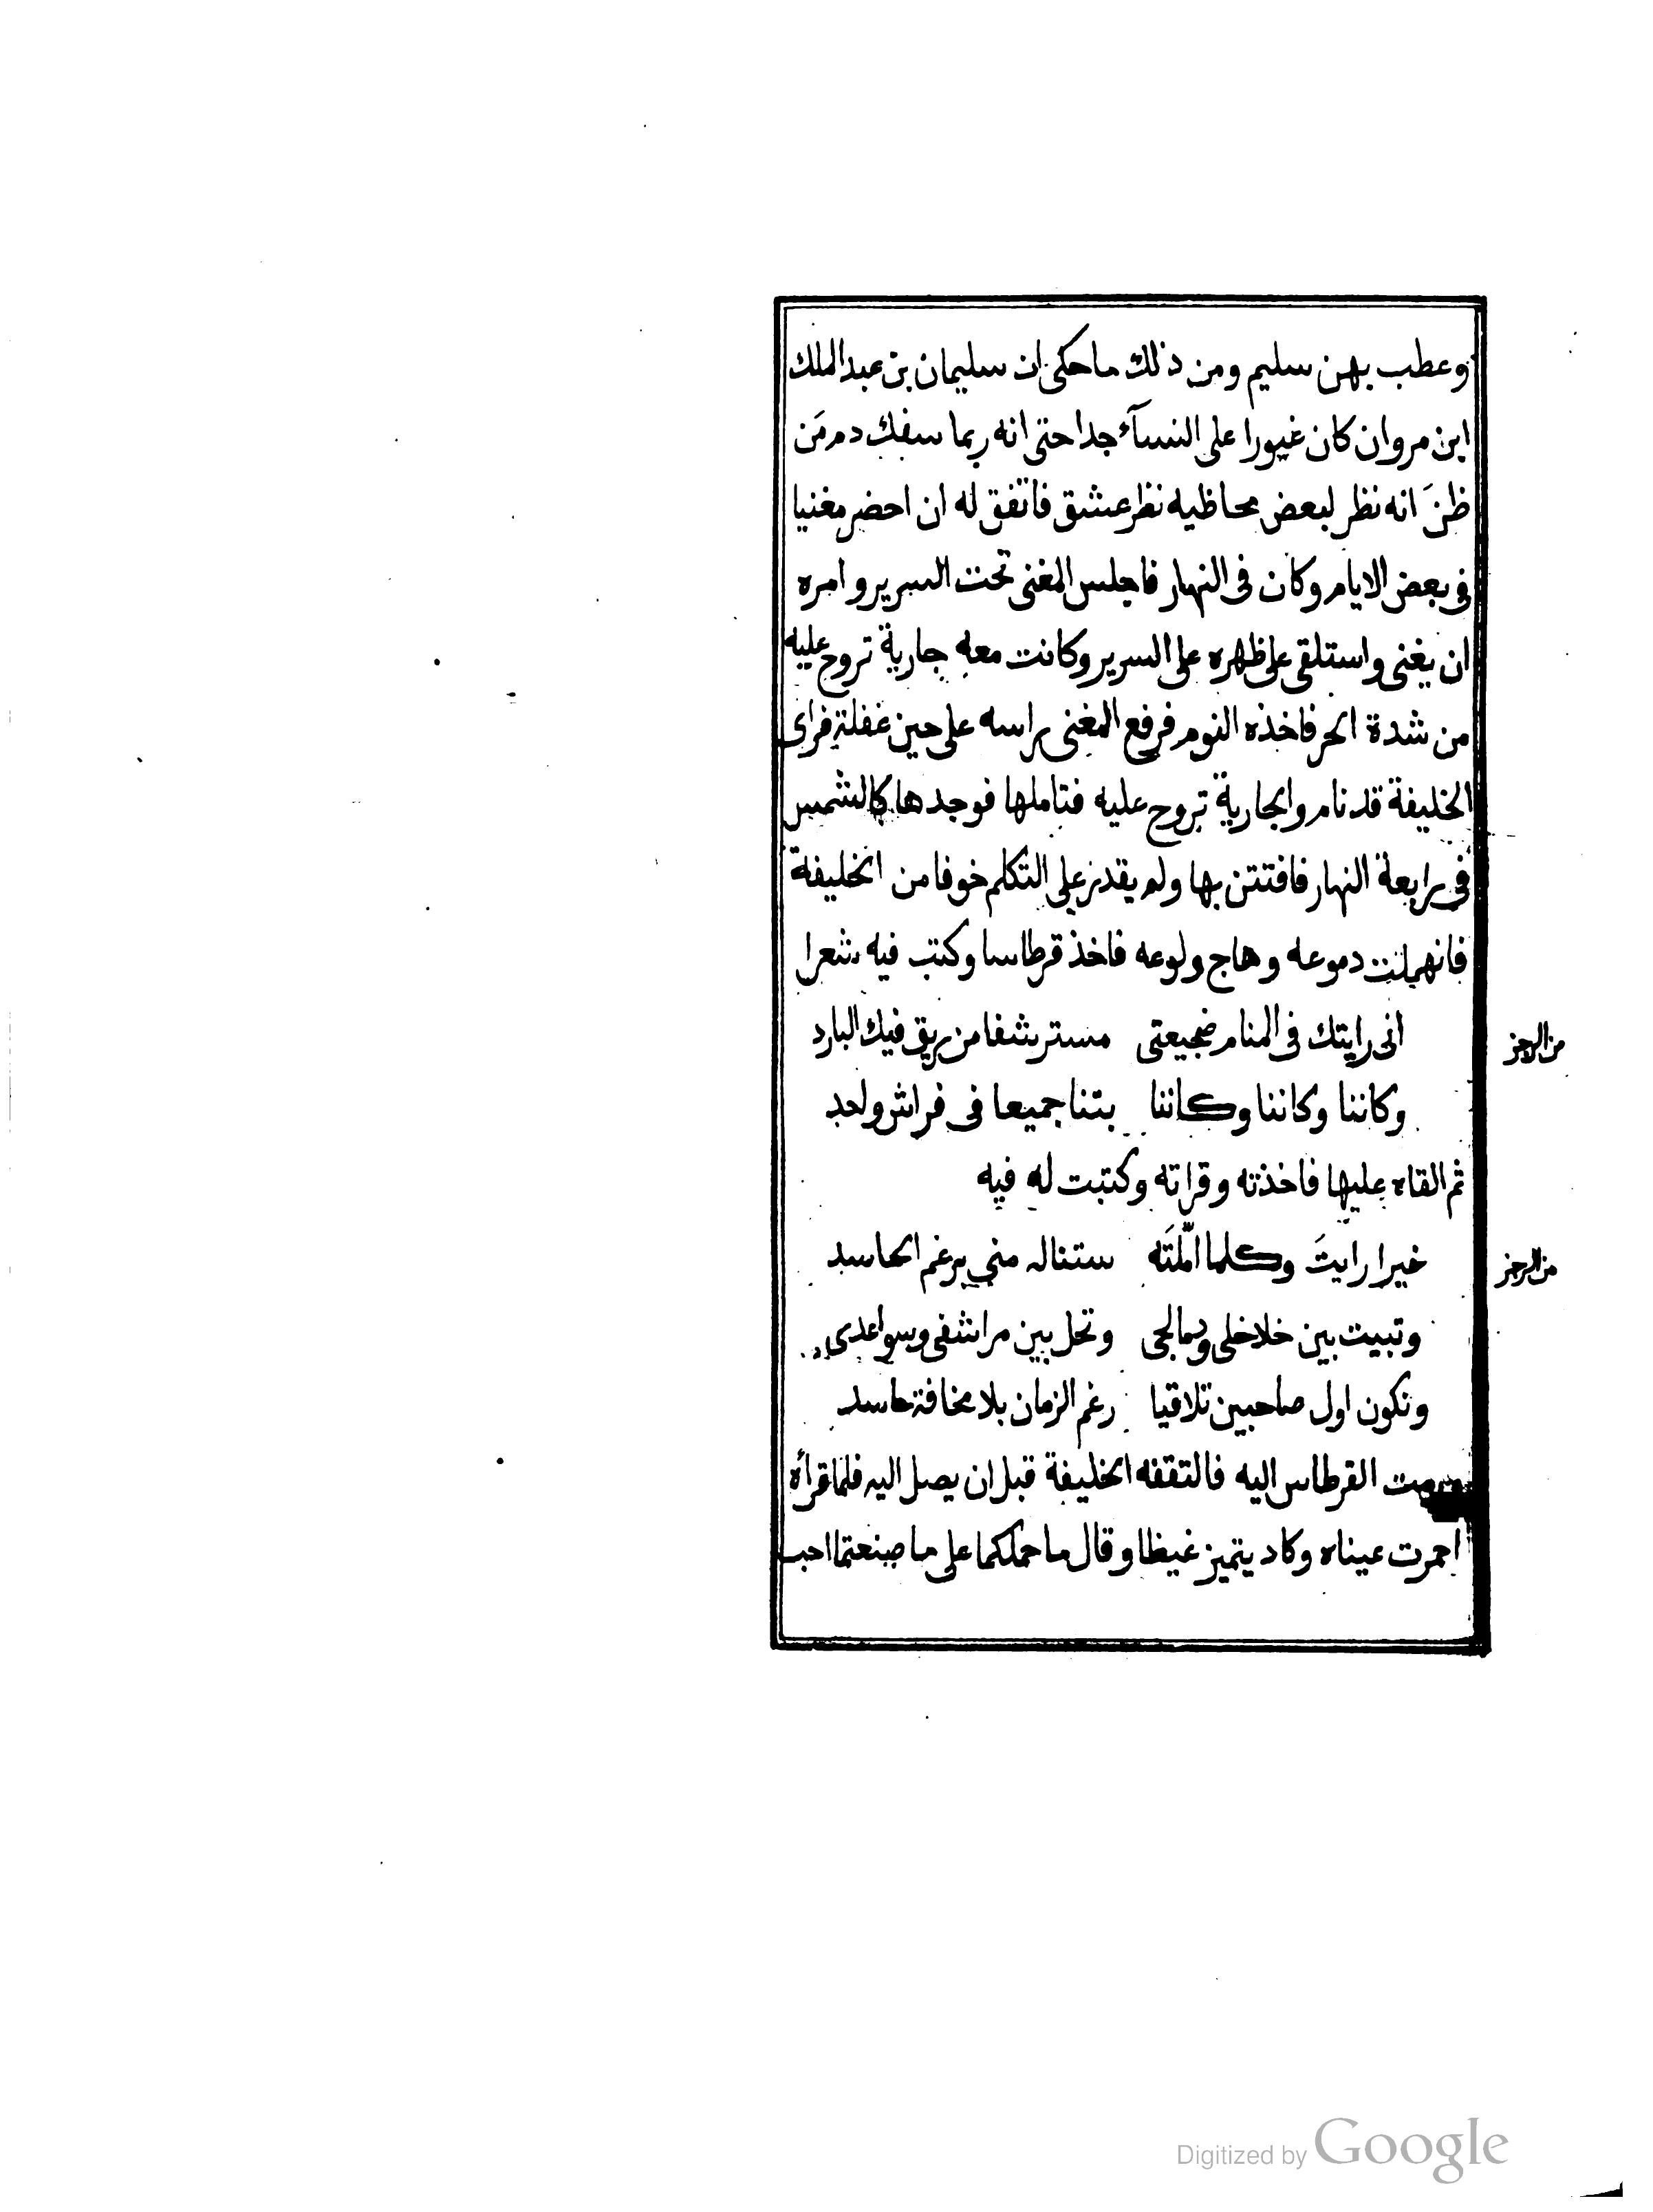 وعطب بهن سليم ومن ذلك ما حكى ان سليمان بن عبد الملك
ابن مروان كان غيورا على النسآء جدا حتى انه ربما سفك دم مَن
ظنَ انه نظر لبعض محاظيه نظر عشق فاتفق له ان احضر مغنيا
في بعض الايام وكان فى النهار فاجلس المغنى تحت السرير وامره
ان يغنى واستلقى على ظهره على السرير وكانت معه جارية تروح عليه
من شدة الحر فاخذه النوم فرفع المغنى راسه على حين غفلة فراى
الخليفة قد نام والجارية تروح عليه فتاملها فوجدها كالشمس
في رابعة النهار فافتتن بها ولم يقدر على التكلم خوفا من الخليفة
فانهملت دموعه وهاج ولوعه فاخذ قرطاسا وكتب فيه شعرا
انى رايتك فى المنام ضجيعتى مسترشفا من ريق فيك البارد
من الرجز
وكاننا وكاننا وكاننا بتنا جميعا فى فراش واحد
ثم القاه عليها فاخذته وقراته وكتبت له فيه
خيرا رايتَ وكلما امّلتَه ستناله منى برغم الحاسد
من الرجز
وتبيت بين خلاخلى ودمالجى وتحل بين مراشفى وسواعدى
ونكون اول صاحبين تلاقيا رغم الزمان بلا مخافة حاسد
ورمت القرطاس اليه فالتقفه الخليفة قبل ان يصل اليه فلما قرأه
احمرت عيناه وكاد يتميز غيظا وقال ما حملكما على ما صنعتما احب
Digitized by Google